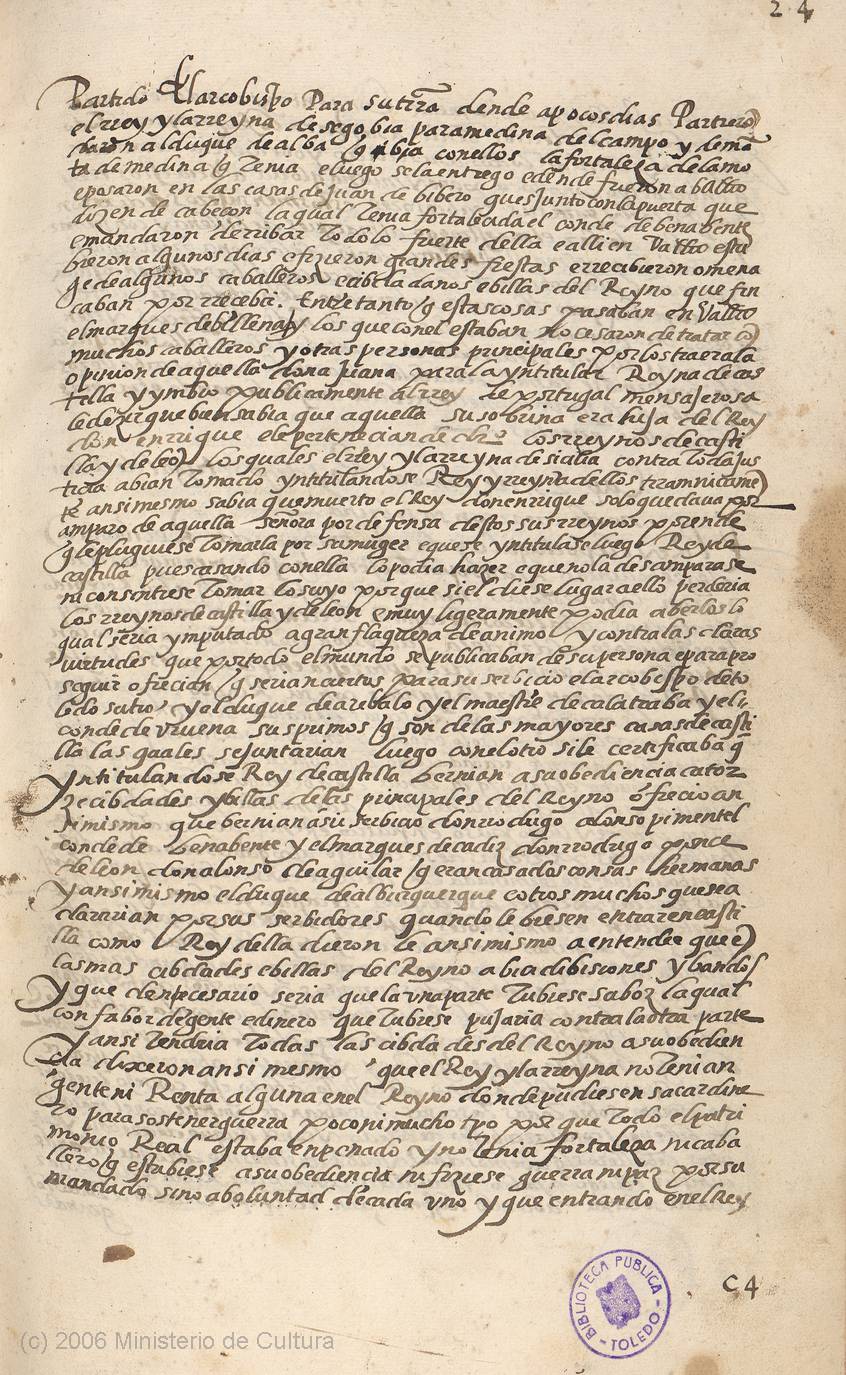 24
Partido El arcobispo Para su tirra dende apocos dias Partiero)
el rrey y la rreyna de segobia para medina del campo y demã
daron al duque de alba q̃ iba con ellos la fortaleza de la mo
ta de medina q̃ Tenia e luego se la entrego e dende fueron a ballid
e posaron en las casas de Juan de bibero que es Junto con la puerta que
dizen de cabecon la qual Tenia fortalecida el conde de benabente
e mandaron derribar Todo lo fuerte della e alli en Vallid estu
bieron algunos dias e fizieron grandes fiestas e rrecibieron omena
ge de algunos caballeros e cibdadanos e billas del Reyno que fin
caban por rrecebir. Entre tanto q̃ estas cosas pasaban en Vallid
el marques de billena y los que con el estaban no cesaron de tratar co)
muchos caballeros y otras personas principales por los traer a la
opinion de aquella doña Juana para la yntitular Reyna de cas
tilla y ymbio publicamente al rrey de portugal mensajeros a
le dezir que bien sabia que aquella su sobrina era hija del Rey
don enrique e le pertenecian de dr.º los rreynos de casti
lla y de leo) los quales el rrey y la rreyna de sicilia contra Toda jus
ticia abian Tomado yntitulandose Rey y rreyna dellos tiranicame)
te ansi mesmo sabia que muerto el Rey don enrique solo quedava por
amparo de aquella señora por defensa destos sus rreynos por ende
q̃ le pluguiese Tomarla por su muger e que se yntitulase luego Rey de
castilla pues casando con ella lo podia hazer e que no la desamparase
ni consintiese Tomar lo suyo porque si el diese lugar a ello perderia
los rreynos de castilla y de leon e muy ligeramente podia aberlos lo
qual seria ymputado a gran flaqueza de animo y contra las claras
virtudes que por todo el mundo se publicaban de su persona e para pro
seguir ofrecian q̃ serian ciertos para su serbicio el arcobispo de to
ledo su tio y al duque de arebalo y el maestre de calatraba y el
conde de vruena sus primos q̃ son de las mayores casas de casti
lla las quales se juntarian luego con el otro si le certificaba q̃
yntitulandose Rey de castilla bernian a su obediencia cator
ze cibdades y billas de las principales del Reyno ofrecio an
si mismo que bernian a su serbicio don rrodrigo alonso pimentel
conde de benabente y el marques de cadiz don rrodrigo ponce
de leon don alonso de aguilar q̃ eran casados con sus hermanas
y ansi mismo el duque de alburquerque e otros muchos que se a
clararian por sus serbidores quando le biesen entrar en casti
lla como Rey della dieron le ansi mismo a entender que e)
las mas cibdades e billas del Reyno abia dibisiones y bandos
y que de necesario seria que la vna parte Tubiese sabor la qual
con fabor de gente e dinero que Tubiese pujaria contra la otra parte
y ansi Tendria Todas las cibdades del Reyno a su obedien
cia dixeron ansi mesmo que el Rey y la rreyna no Tenian
gente ni Renta alguna en el Reyno donde pudiesen sacar dine
ro para sostener guerra poco ni mucho tpo por que Todo el patri
monio Real estaba enpenado y no Tenia fortaleza ni caba
llero q̃ estabiese a su obediencia ni fiziese guerra ni paz por su
mandado sino a boluntad de cada vno y que entrando en el Rey
C4
BIBLIOTECA PUBLICA - TOLEDO -
(c) 2006 Ministerio de Cultura